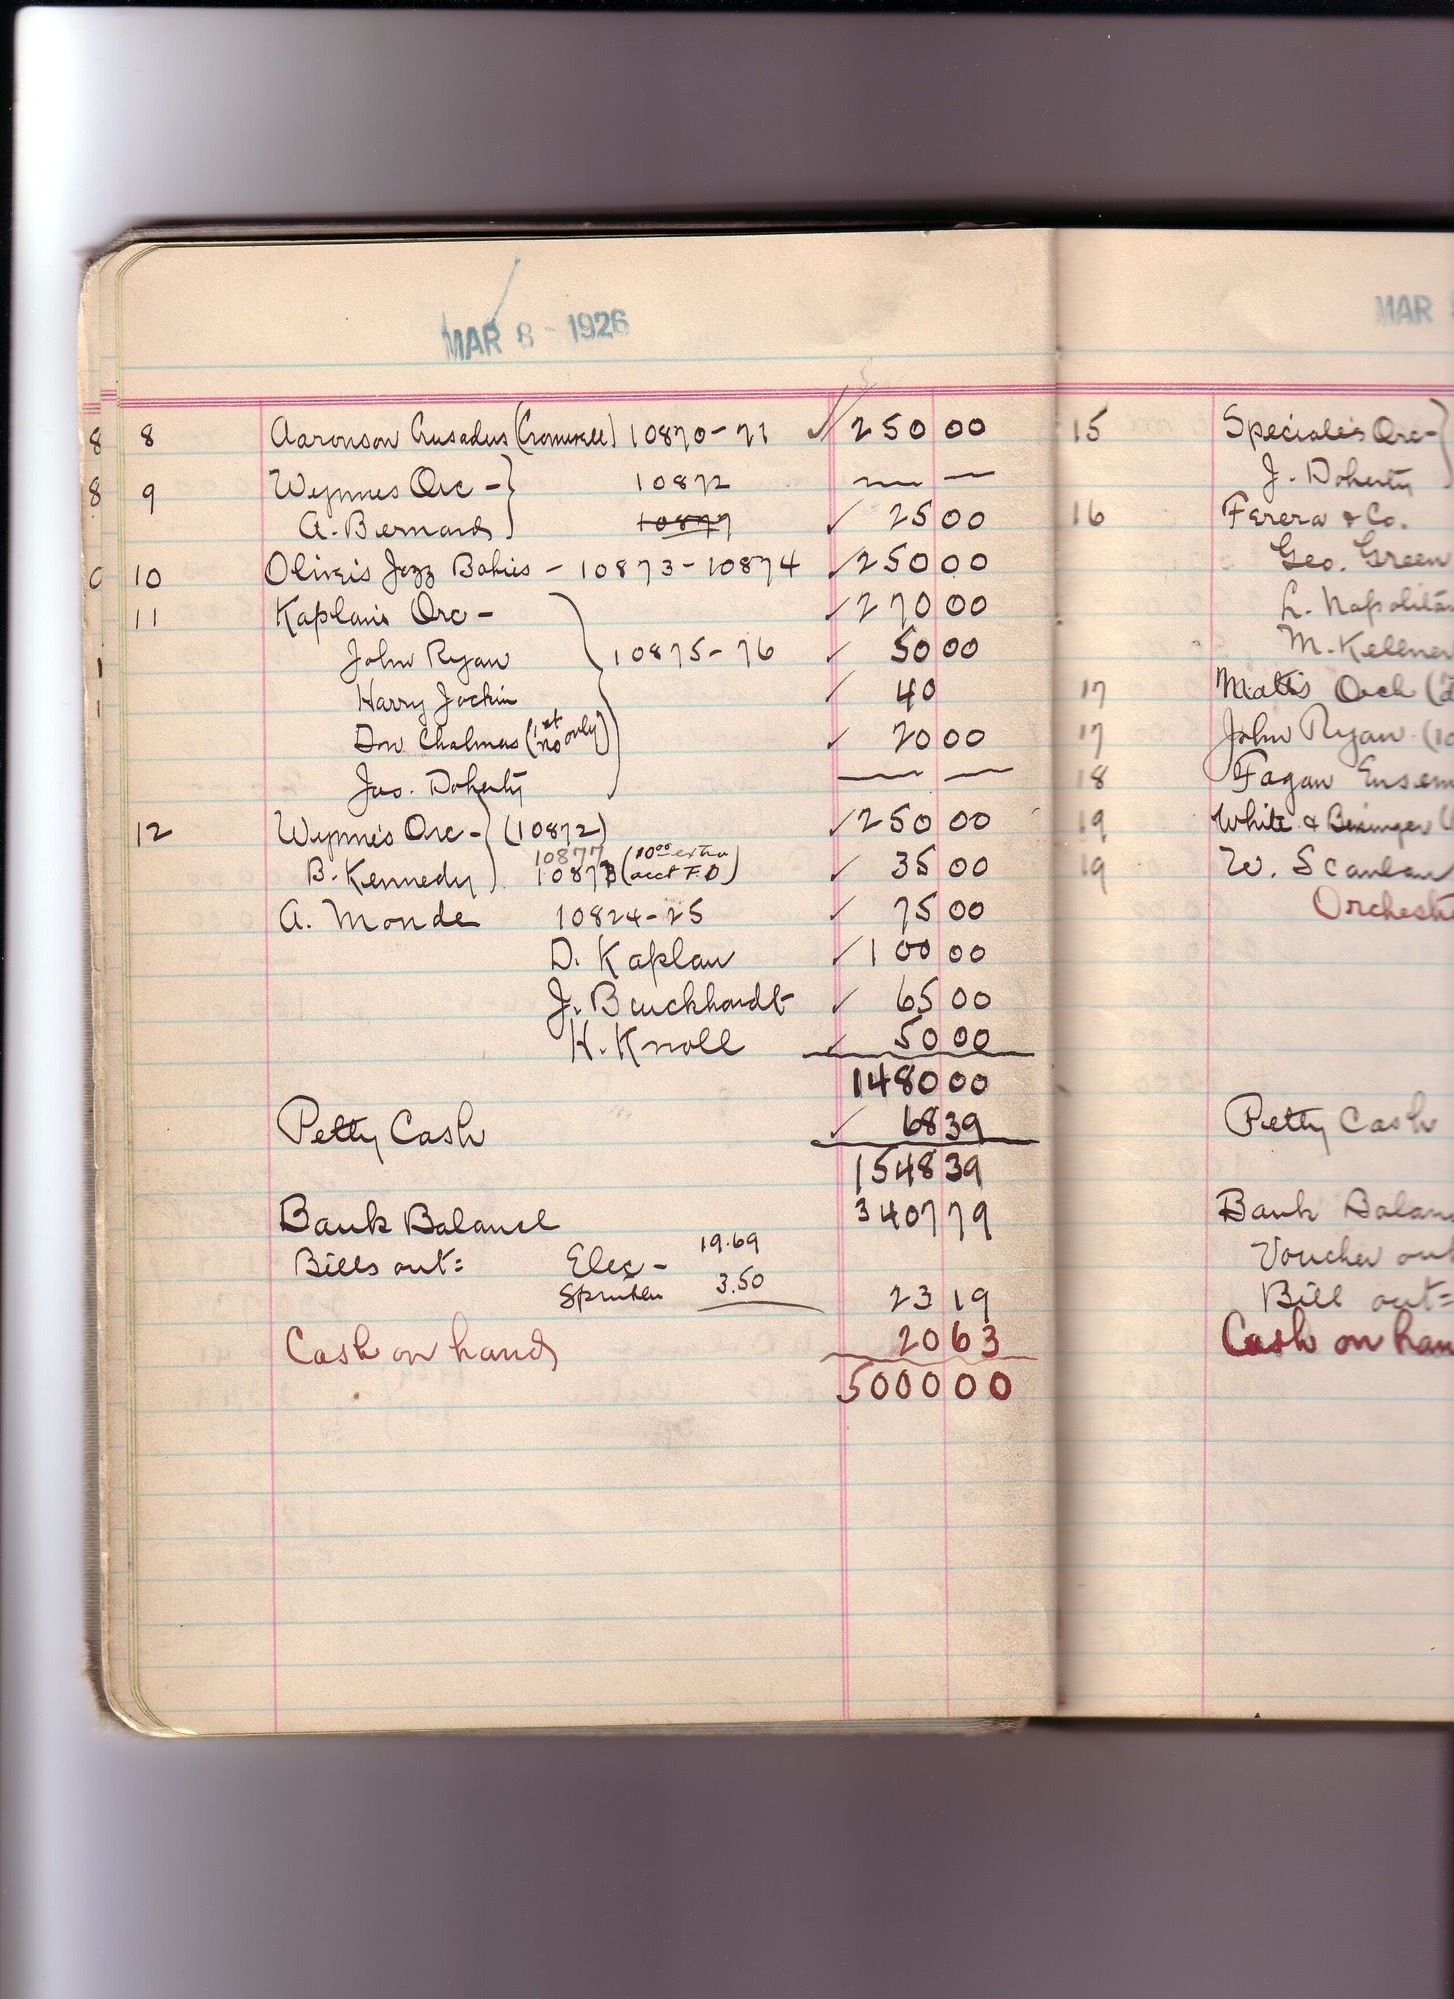 MAR 8 - 1926
8 8 Aaronson Crusaders (Cromwell) 10870-71 250 00
8 9 Wynnes Orc - 10872
A. Bernard 10877 25 00
0 10 Oliver's Jazz Babies - 10873-10874 250 00
11 Kaplan's Orc - 270 00
1 John Ryan 10875-76 50 00
1 Harry Jockin 40
Don Chalmers (1st no only) 20 00
Jas. Doherty
12 Wynne's Orc - (10872) 250 00
10877
B. Kennedy 10873 (10 00 extra acct F D) 35 00
A. Monde 10824-25 75 00
D. Kaplan 100 00
J. Burckhardt 65 00
H. Knoll 50 00
1480 00
Petty Cash 68 39
1548 39
Bank Balance 3407 79
Bills out: Elec - 19.69
3.50 23 19
Cash on hand 20 63
5000 00
MAR
15 Speciale's Orc-
J. Doherty
16 Ferera & Co.
Geo. Green
L. Napolitan
M. Kellner
17 Matt's Orch
17 John Ryan (10
18 Fagan Ensem
19 White & Besinger
19 W. Scanlan
Orchest
Petty Cash
Bank Balan
Voucher out
Bill out=
Cash on han